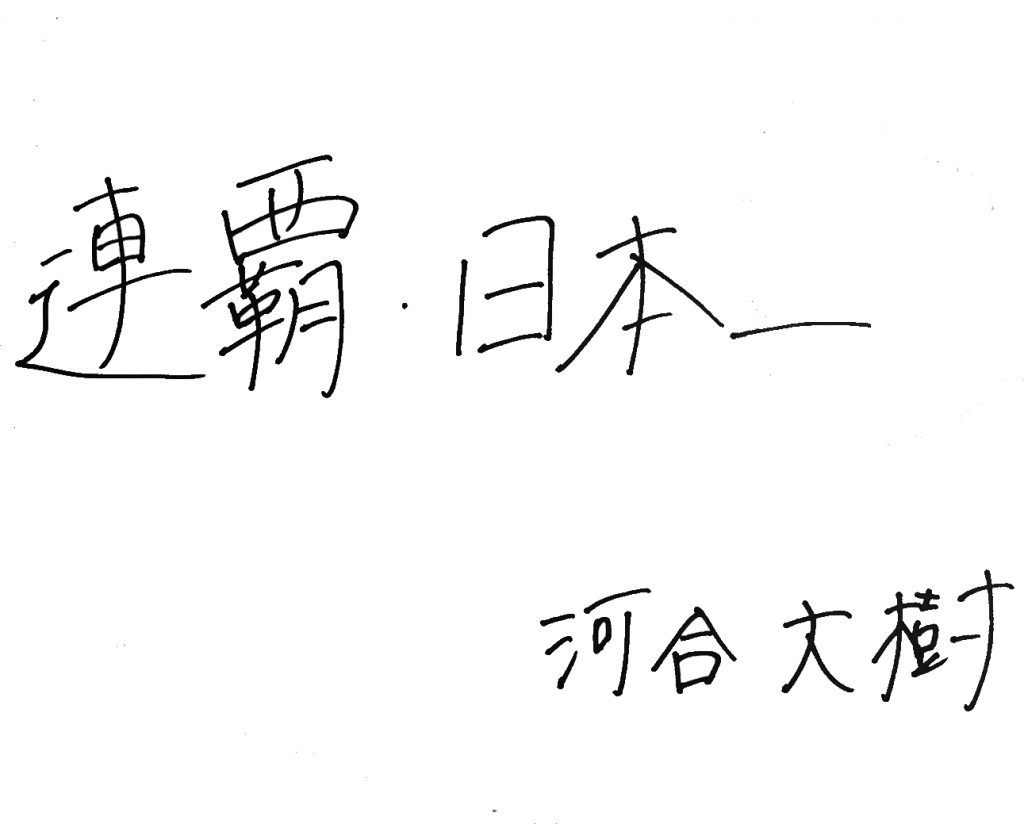 連覇・日本一
河合大樹